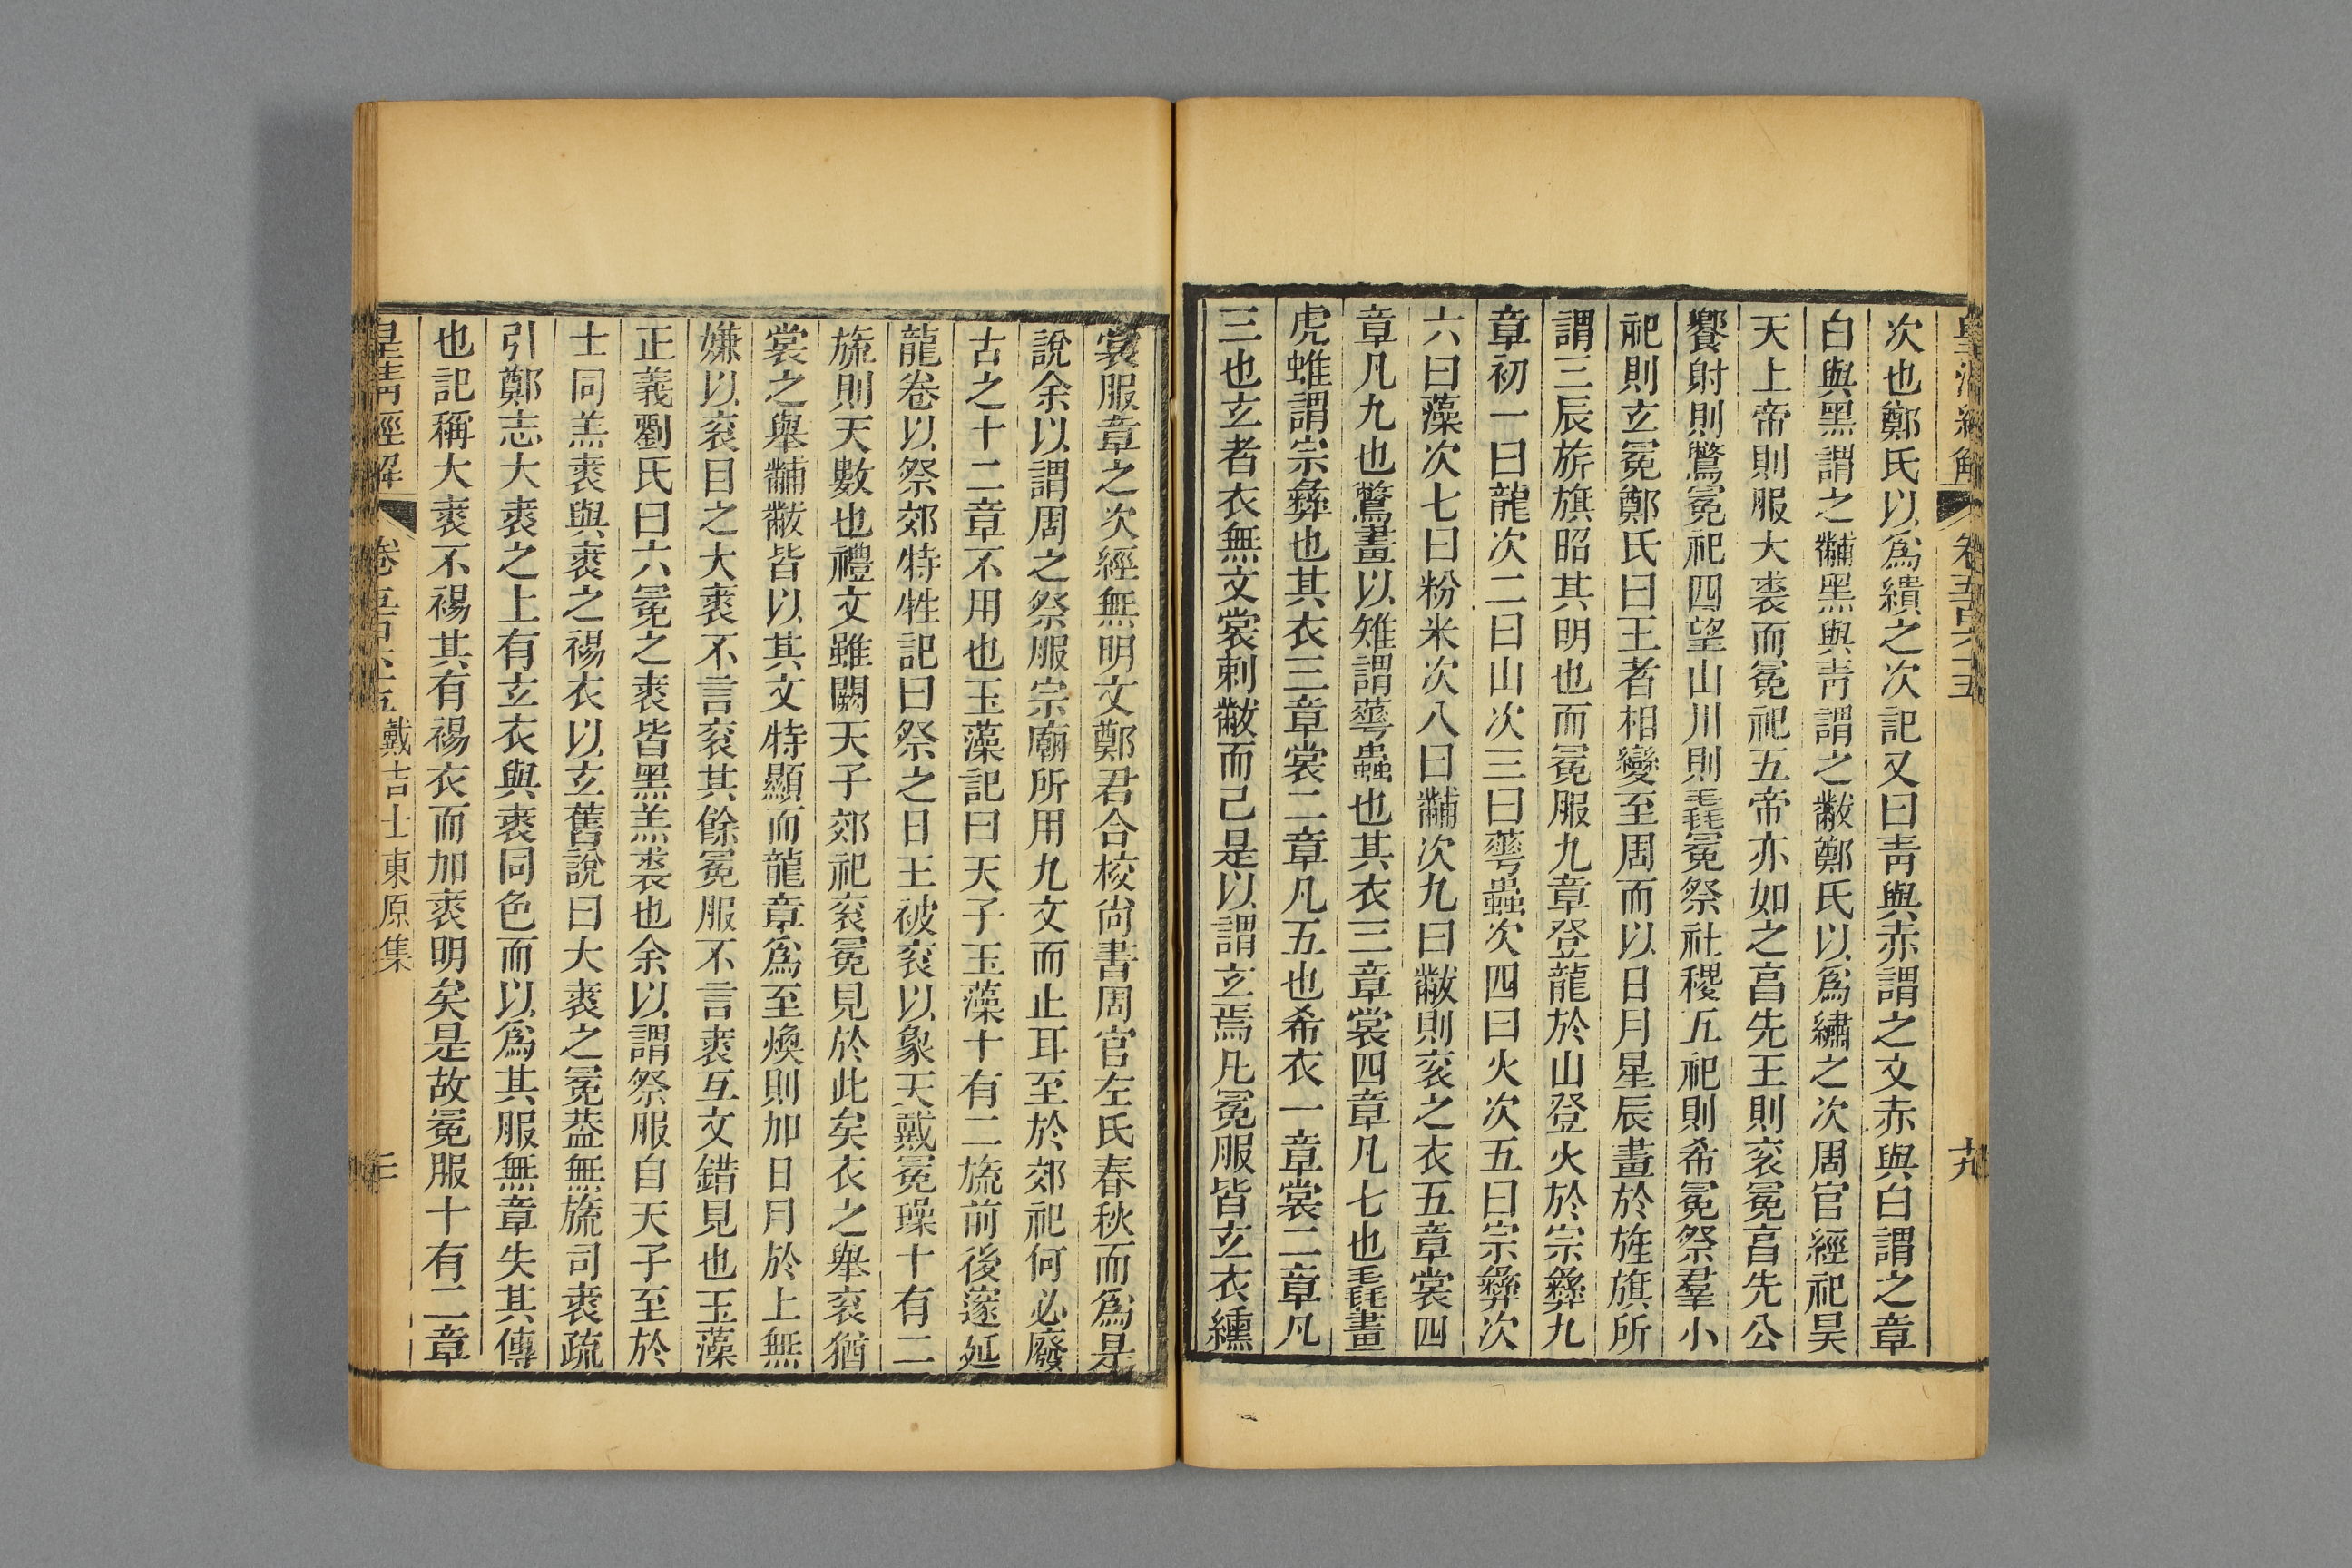 次也鄭氏以爲繢之次記又曰青與赤謂之文赤與白謂之章
白與黑謂之黼黑與青謂之黻鄭氏以爲繡之次周官經祀昊
天上帝則服大裘而冕祀五帝亦如之亯先王則衮冕亯先公
饗射則鷩冕祀四望山川則毳冕祭社稷五祀則希冕祭羣小
祀則玄冕鄭氏曰王者相變至周而以日月星辰畫於旌旗所
謂三辰旂旗昭其明也而冕服九章登龍於山登火於宗彝九
章初一曰龍次二曰山次三曰蕚蟲次四曰火次五曰宗彝次
六曰藻次七曰粉米次八曰黼次九曰黻則衮之衣五章裳四
章凡九也鷩畫以雉謂蕚蟲也其衣三章裳四章凡七也毳畫
虎蜼謂宗彝也其衣三章裳二章凡五也希衣一章裳二章凡
三也玄者衣無文裳刺黻而已是以謂玄焉凡冕服皆玄衣纁
裳服章之次經無明文鄭君合校尚書周官左氏春秋而爲是
說余以謂周之祭服宗廟所用九文而止耳至於郊祀何必廢
古之十二章不用也玉藻記曰天子玉藻十有二旒前後邃延
龍卷以祭郊特牲記曰祭之日王被衮以象天戴冕璪十有二
旒則天數也禮文雖闕天子郊祀衮冕見於此矣衣之舉衮猶
裳之舉黼黻皆以其文特顯而龍章爲至煥則加日月於上無
嫌以衮目之大裘不言衮其餘冕服不言裘互文錯見也玉藻
正義劉氏曰六冕之裘皆黑羔裘也余以謂祭服自天子至於
士同羔裘與裘之裼衣以玄舊說曰大裘之冕葢無旒司裘疏
引鄭志大裘之上有玄衣與裘同色而以爲其服無章失其傳
也記稱大裘不裼其有裼衣而加裘明矣是故冕服十有二章
皇清經解 卷五百六十五 戴吉士東原集